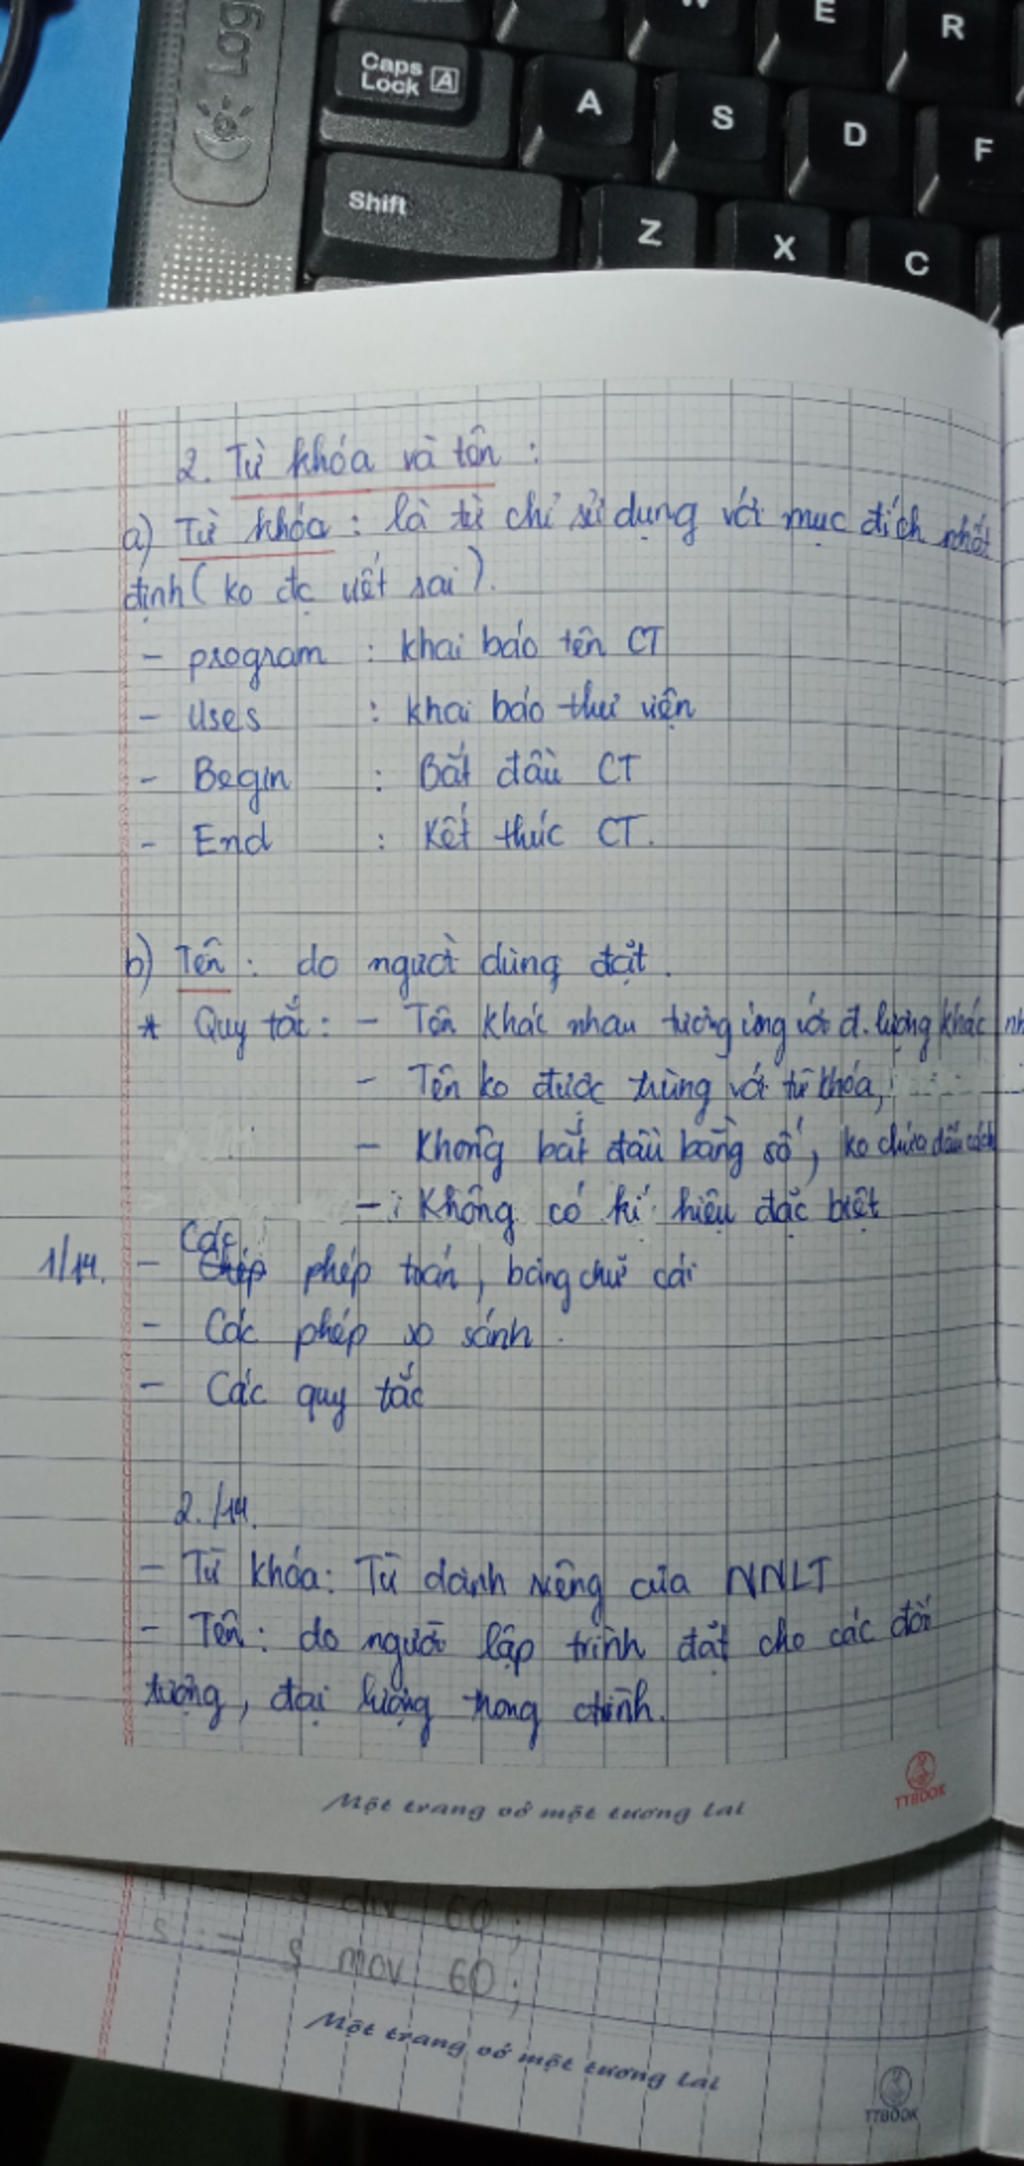 Log
Caps Lock A
W E R
A S D F
Shift Z X C
2. Từ khóa và tên :
a) Từ khóa : là từ chỉ sử dụng với mục đích nhất
định ( ko đc viết sai ).
- program : khai báo tên CT
- Uses : khai báo thư viện
- Begin : Bắt đầu CT
- End : Kết thúc CT.
b) Tên : do người dùng đặt.
* Quy tắc : - Tên khác nhau tương ứng với đ. lượng khác nh
- Tên ko được trùng với từ khóa,
- Không bắt đầu bằng số, ko chứa dấu cách
- Không có kí hiệu đặc biệt
1/14. - Các phép toán, bảng chữ cái
- Các phép so sánh.
- Các quy tắc
2./14.
- Từ khóa: Từ dành riêng của NNLT
- Tên: do người lập trình đặt cho các đối
tượng, đại lượng trong ctrình.
Một trang vở một tương lai
TTBOOK
:= s div 60 ;
s := s mov 60 ;
Một trang vở một tương lai
TTBOOK